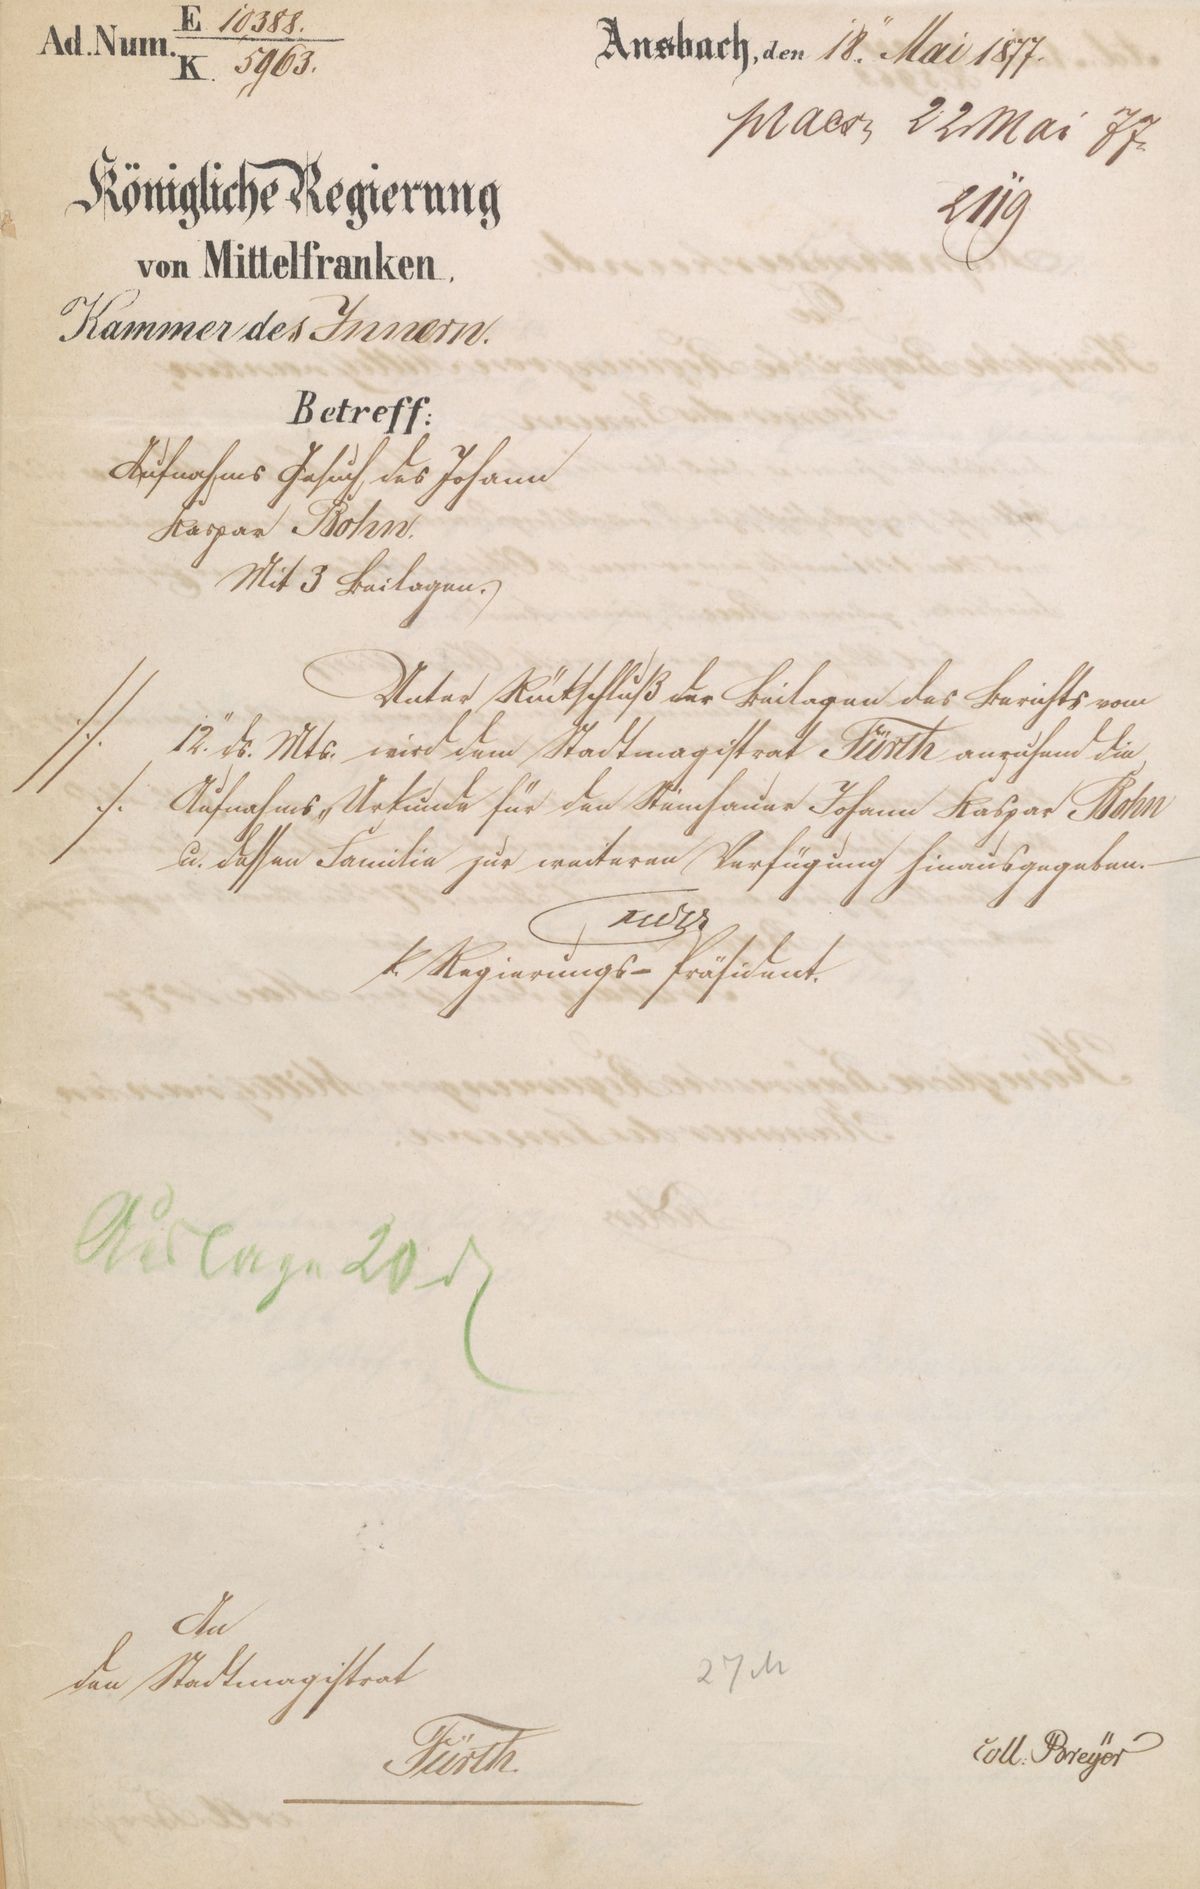 Ad. Num. E 10388.
K. 5963.
Ansbach, den 18. Mai 1877.
praes. 22 Mai 77.
2119
Königliche Regierung
von Mittelfranken,
Kammer des Innern.
Betreff:
Aufnahms Gesuch des Johann
Kaspar Bohn.
Mit 3 Beilagen.
Unter Rückschluß der Beilagen des Berichts vom
12. ds. Mts. wird dem Stadtmagistrat Fürth anruhend die
Aufnahms-Urkunde für den Steinhauer Johann Kaspar Bohn
u. dessen Familie zur weiteren Verfügung hinausgegeben.
k. Regierungs-Präsident.
Auslage 20 d
An
den Stadtmagistrat
Fürth.
27 M
coll. Breyer